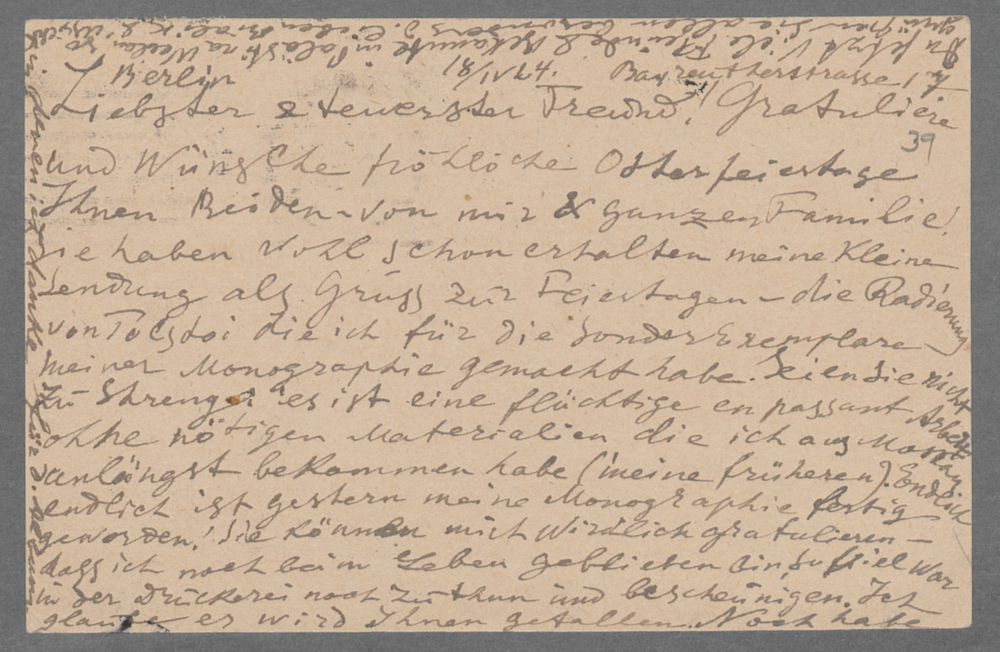 Berlin 18/IV 24. Bayreutherstrasse
Liebster & teuerster Freund! Gratuliere
39
und Wünsche fröhliche Osterfeiertage
Ihnen Beiden - von mir & ganzen Familie!
Sie haben vohl schon erhalten meine kleine
Sendung als Gruss zur Feiertagen - die Radierung
von Tolstoi die ich für die Sonder Exemplare
meiner Monographie gemacht habe. Seien Sie nicht
zu Shreng: es ist eine flüchtige en passant Arbeit
ohne nötigen Materialien die ich aus Moskau
unlängst bekommen habe (meine früheren). Endlich
endlich ist gestern meine Monographie fertig
geworden! Sie können mich wirklich gratulieren -
dass ich noch beim Leben geblieben bin so fiel war
in der Druckerei noch zu thun und bescheinigen. Ich
glaube es wird Ihnen gefallen. Noch habe